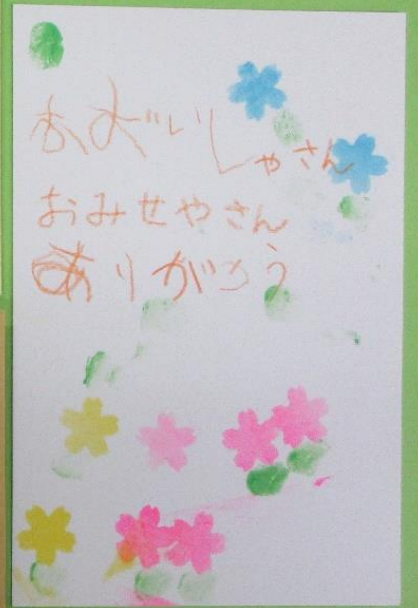 おおいしゃさん
おみせやさん
ありがとう